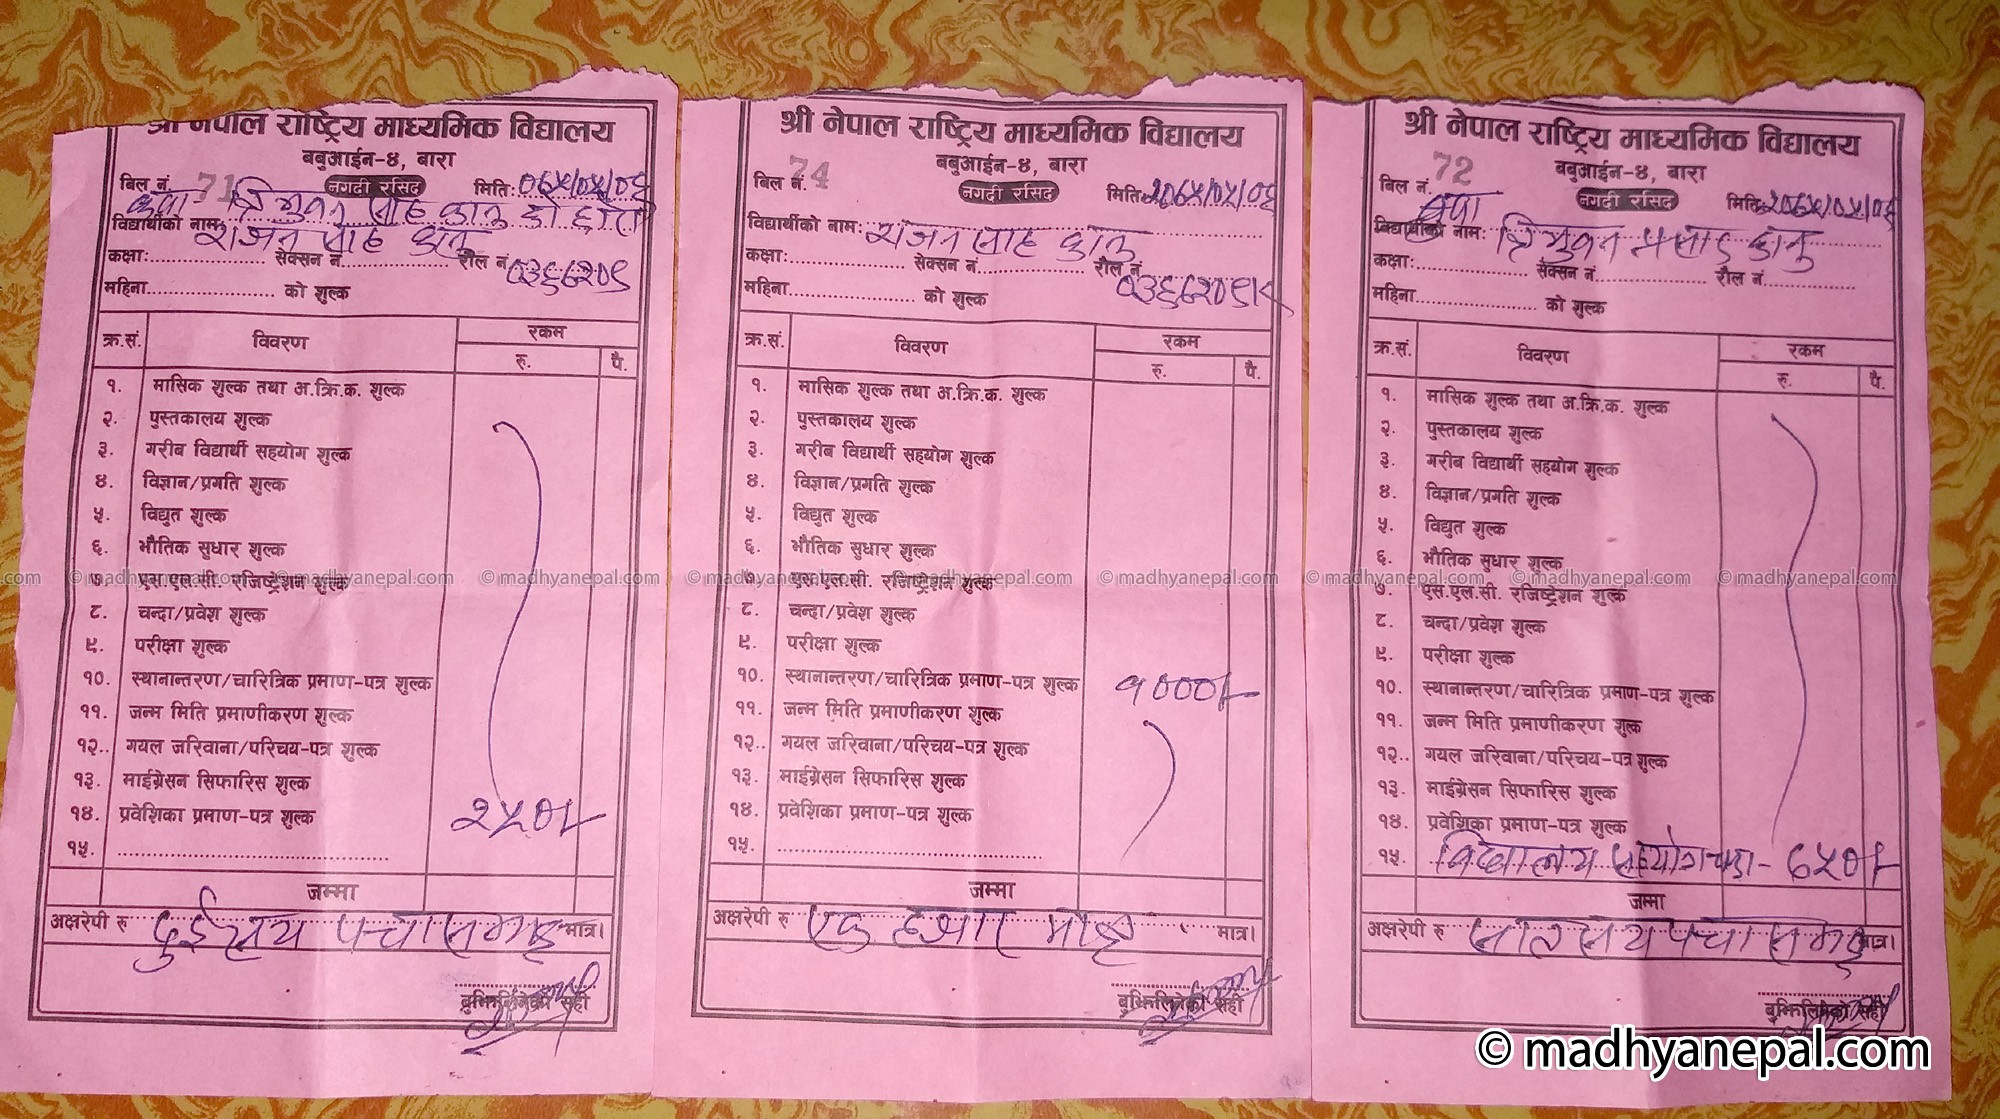 श्री नेपाल राष्ट्रिय माध्यमिक विद्यालय
बबुआईन-४, बारा
बिल नं. 71 नगदी रसिद मिति: ०६५/०५/०६
विद्यार्थीको नाम: राजन साह कानु
कक्षा: सेक्सन नं. रौल नं.
महिना को शुल्क
क्र.सं. विवरण रकम
रु. पै.
१. मासिक शुल्क तथा अ.क्रि.क. शुल्क
२. पुस्तकालय शुल्क
३. गरीब विद्यार्थी सहयोग शुल्क
४. विज्ञान/प्रगति शुल्क
५. विद्युत शुल्क
६. भौतिक सुधार शुल्क
७. एस.एल.सी. रजिष्ट्रेशन शुल्क
८. चन्दा/प्रवेश शुल्क
९. परीक्षा शुल्क
१०. स्थानान्तरण/चारित्रिक प्रमाण-पत्र शुल्क
११. जन्म मिति प्रमाणीकरण शुल्क
१२.. गयल जरिवाना/परिचय-पत्र शुल्क
१३. माईग्रेसन सिफारिस शुल्क
१४. प्रवेशिका प्रमाण-पत्र शुल्क २५०/-
१५.
जम्मा
अक्षरेपी रु दुई सय पचास मात्र मात्र।
बुझिलिनेको सही
श्री नेपाल राष्ट्रिय माध्यमिक विद्यालय
बबुआईन-४, बारा
बिल नं. 74 नगदी रसिद मिति: २०६५/०५/०६
विद्यार्थीको नाम: राजन साह कानु
कक्षा: सेक्सन नं. रौल नं.
महिना को शुल्क
क्र.सं. विवरण रकम
रु. पै.
१. मासिक शुल्क तथा अ.क्रि.क. शुल्क
२. पुस्तकालय शुल्क
३. गरीब विद्यार्थी सहयोग शुल्क
४. विज्ञान/प्रगति शुल्क
५. विद्युत शुल्क
६. भौतिक सुधार शुल्क
७. एस.एल.सी. रजिष्ट्रेशन शुल्क
८. चन्दा/प्रवेश शुल्क
९. परीक्षा शुल्क
१०. स्थानान्तरण/चारित्रिक प्रमाण-पत्र शुल्क १०००/-
११. जन्म मिति प्रमाणीकरण शुल्क
१२.. गयल जरिवाना/परिचय-पत्र शुल्क
१३. माईग्रेसन सिफारिस शुल्क
१४. प्रवेशिका प्रमाण-पत्र शुल्क
१५.
जम्मा
अक्षरेपी रु एक हजार मात्र मात्र।
बुझिलिनेको सही
श्री नेपाल राष्ट्रिय माध्यमिक विद्यालय
बबुआईन-४, बारा
बिल नं. 72 नगदी रसिद मिति: २०६५/०५/०६
विद्यार्थीको नाम: त्रिभुवन प्रसाद कानु
कक्षा: सेक्सन नं. रौल नं.
महिना को शुल्क
क्र.सं. विवरण रकम
रु. पै.
१. मासिक शुल्क तथा अ.क्रि.क. शुल्क
२. पुस्तकालय शुल्क
३. गरीब विद्यार्थी सहयोग शुल्क
४. विज्ञान/प्रगति शुल्क
५. विद्युत शुल्क
६. भौतिक सुधार शुल्क
७. एस.एल.सी. रजिष्ट्रेशन शुल्क
८. चन्दा/प्रवेश शुल्क
९. परीक्षा शुल्क
१०. स्थानान्तरण/चारित्रिक प्रमाण-पत्र शुल्क
११. जन्म मिति प्रमाणीकरण शुल्क
१२.. गयल जरिवाना/परिचय-पत्र शुल्क
१३. माईग्रेसन सिफारिस शुल्क
१४. प्रवेशिका प्रमाण-पत्र शुल्क
१५. विद्यालय सहयोग ७५०/-
जम्मा
अक्षरेपी रु सात सय पचास मात्र मात्र।
बुझिलिनेको सही
© madhyanepal.com